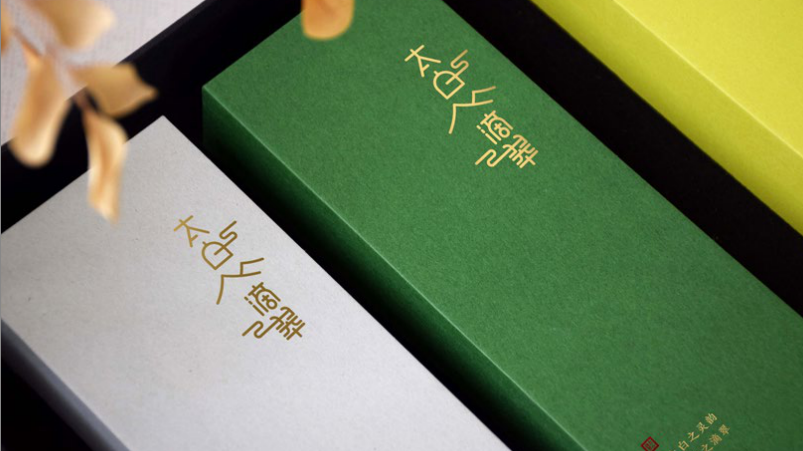 太白
滴翠
太白
滴翠
白之灵韵
之滴翠